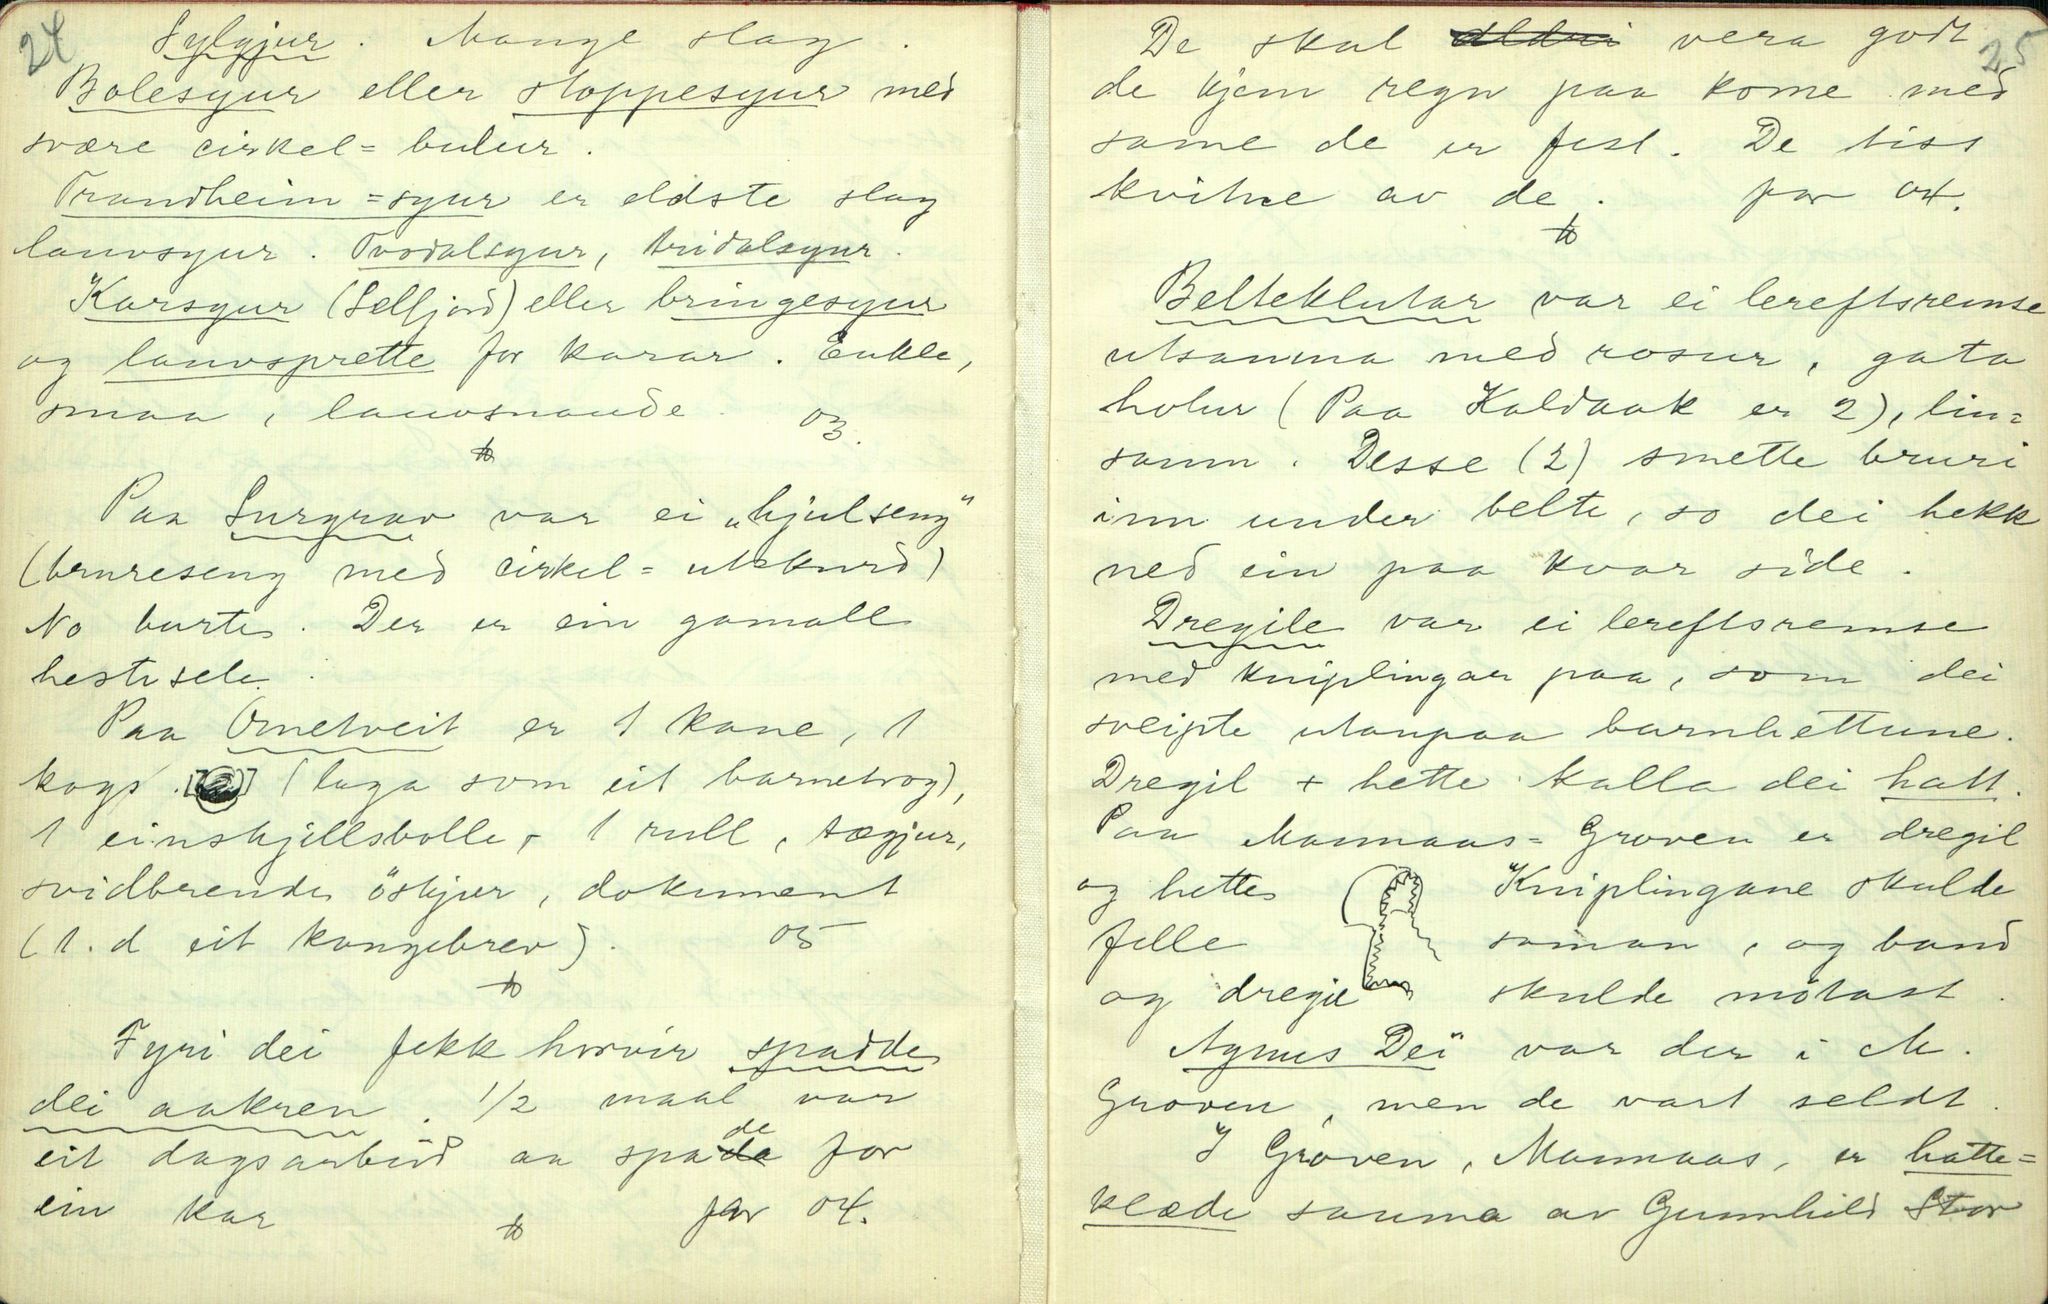 24
Sylgjur. Mange slag.
Bolesyur eller stoppesyur med
svære cirkel= bulur.
Trandheim=syur er eldste slag
lauvsyur. Tvodalsyur, tridalsyur.
Karsyur (Selfjord) eller bringesyur
og lauvsprette for karar. Enkle,
smaa, lauvsnaude. 03.
Paa Surgrav var ei "hjulseng"
(brureseng med cirkel= utskurd)
No burte. Der er ein gamall
hestesele.
Paa Ornetveit er 1 kane, 1
kogs. (laga som eit barnetrog),
1 einskjillsbolle, 1 rull, tægjur,
svidbrende öskjur, dokument
(1. d eit kongebrev). 05
Fyri dei fekk horvir spadde
dei aakren. 1/2 maal var
eit dagsarbeid aa spade for
ein kar far 04.
25
De skal aldri vera godt
de kjem regn paa kome med
same de er fest. De tiss
kvitne av de. far 04.
Belteklutar var ei lereftsremse
utsauma med rosur, gata
holur (Paa Kaldaak er 2), lin=
saum. Desse (2) smette bruri
inn under belte, so dei hekk
ned ein paa kvar side.
Dregile var ei lereftsremse
med kniplingar paa, som dei
sveipte utanpaa barnhettune.
Dregil + hette kalla dei hatt.
Paa Mannaas=Groven er dregil
og hette Kniplingane skulde
felle saman, og band
og dregil skulde mötast.
Agnus Dei var der i M.
Groven, men de vart seldt.
I Groven, Mannaas, er hatte=
klæde sauma av Gunnhild Stor